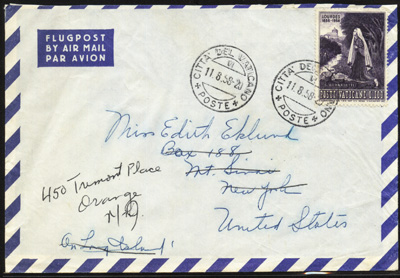 FLUGPOST
BY AIR MAIL
PAR AVION
CITTA' DEL VATICANO
11.8.58-20
POSTE
CITTA' DEL VATICANO
11.8.58-20
POSTE
LOURDES
1858-1958
POSTE VATICANE
Miss Edith Eklund
Box 184.
Mt. Sinai
New York
United States
450 Tremont Place
Orange
N.J.
On Long Island